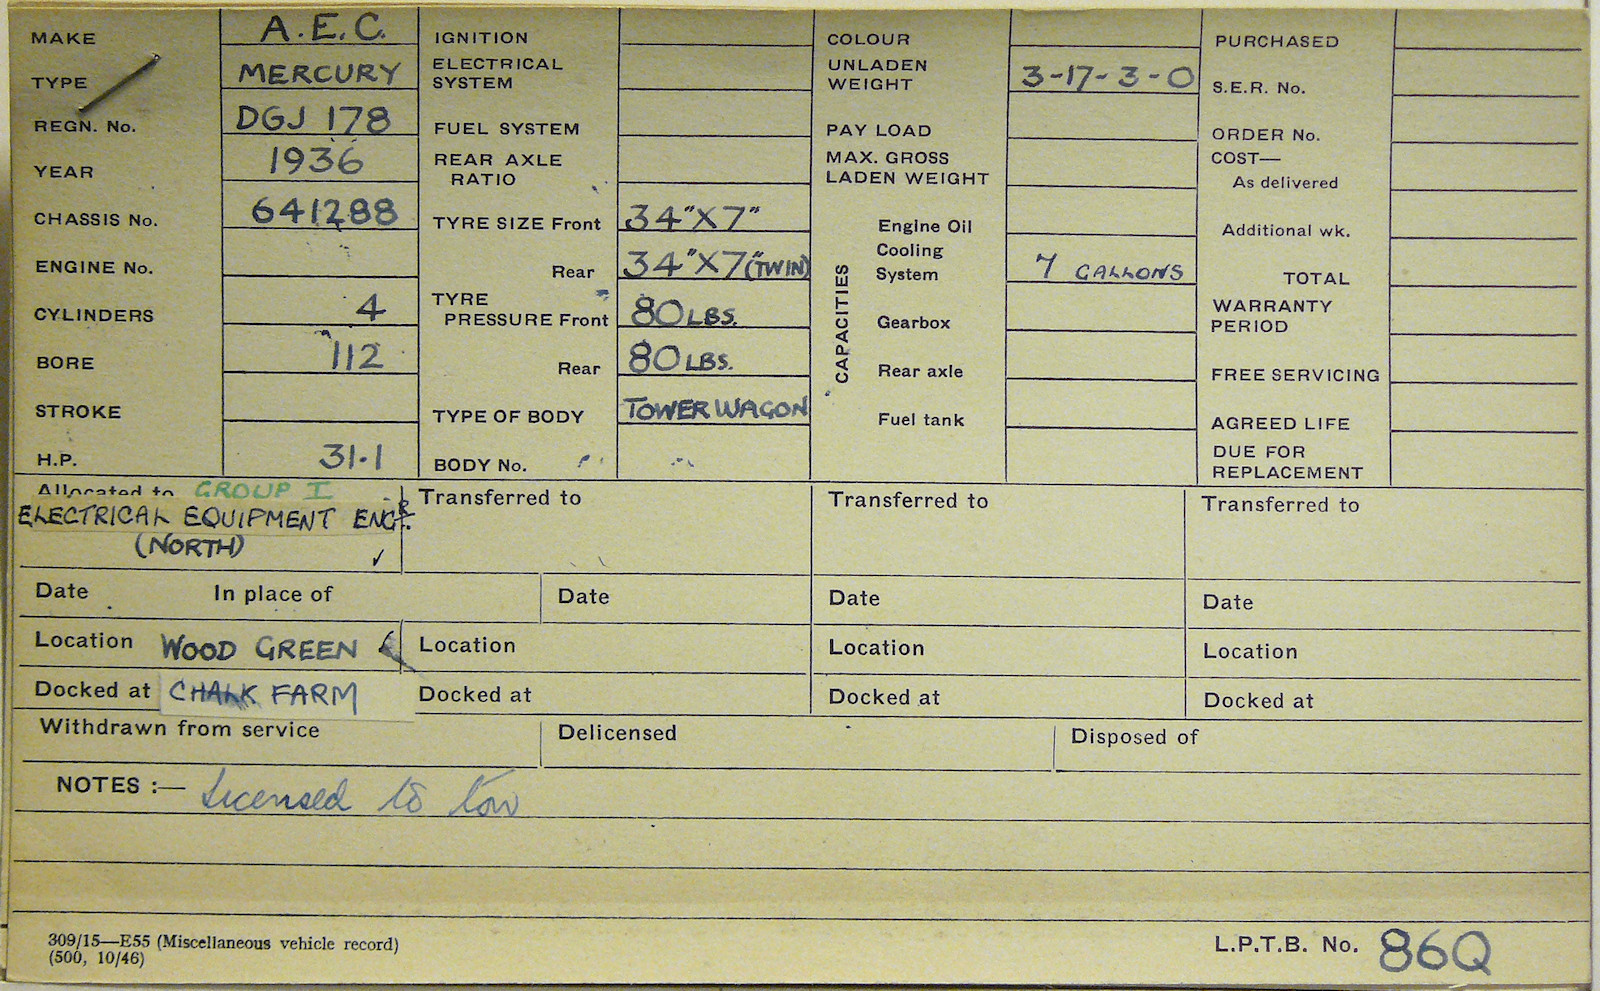 MAKE A.E.C.
TYPE MERCURY
REGN. No. DGJ 178
YEAR 1936
CHASSIS No. 641288
ENGINE No.
CYLINDERS 4
BORE 112
STROKE
H.P. 31·1
IGNITION
ELECTRICAL
SYSTEM
FUEL SYSTEM
REAR AXLE
RATIO
TYRE SIZE Front 34"X7"
Rear 34"X7"(TWIN)
TYRE
PRESSURE Front 80LBS.
Rear 80LBS.
TYPE OF BODY TOWER WAGON
BODY No.
COLOUR
UNLADEN
WEIGHT 3-17-3-0
PAY LOAD
MAX. GROSS
LADEN WEIGHT
CAPACITIES
Engine Oil
Cooling
System 7 GALLONS
Gearbox
Rear axle
Fuel tank
PURCHASED
S.E.R. No.
ORDER No.
COST—
As delivered
Additional wk.
TOTAL
WARRANTY
PERIOD
FREE SERVICING
AGREED LIFE
DUE FOR
REPLACEMENT
Allocated to GROUP I
ELECTRICAL EQUIPMENT ENGR.
(NORTH) ✓
Transferred to
Transferred to
Transferred to
Date In place of
Date
Date
Date
Location WOOD GREEN
Location
Location
Location
Docked at CHALK FARM
Docked at
Docked at
Docked at
Withdrawn from service
Delicensed
Disposed of
NOTES :— Licensed to tow
309/15—E55 (Miscellaneous vehicle record)
(500, 10/46)
L.P.T.B. No. 86Q